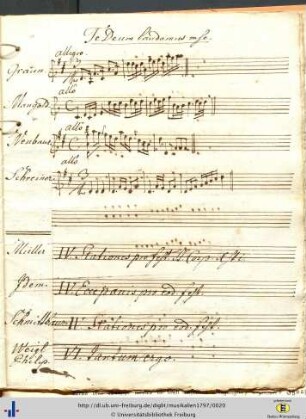 Te Deum laudamus
allegro
Graun
allo
Mangold
allo
Neubaur
allo
Schreiner
Müller IV. Stationes pro fest.
Idem. IV. Ecce panis pro eod. fest.
Schmittbaur II. Stationes pro eod. fest.
VI. Tantum ergo.
http://dl.ub.uni-freiburg.de/diglit/musikalien1797/0029
© Universitätsbibliothek Freiburg